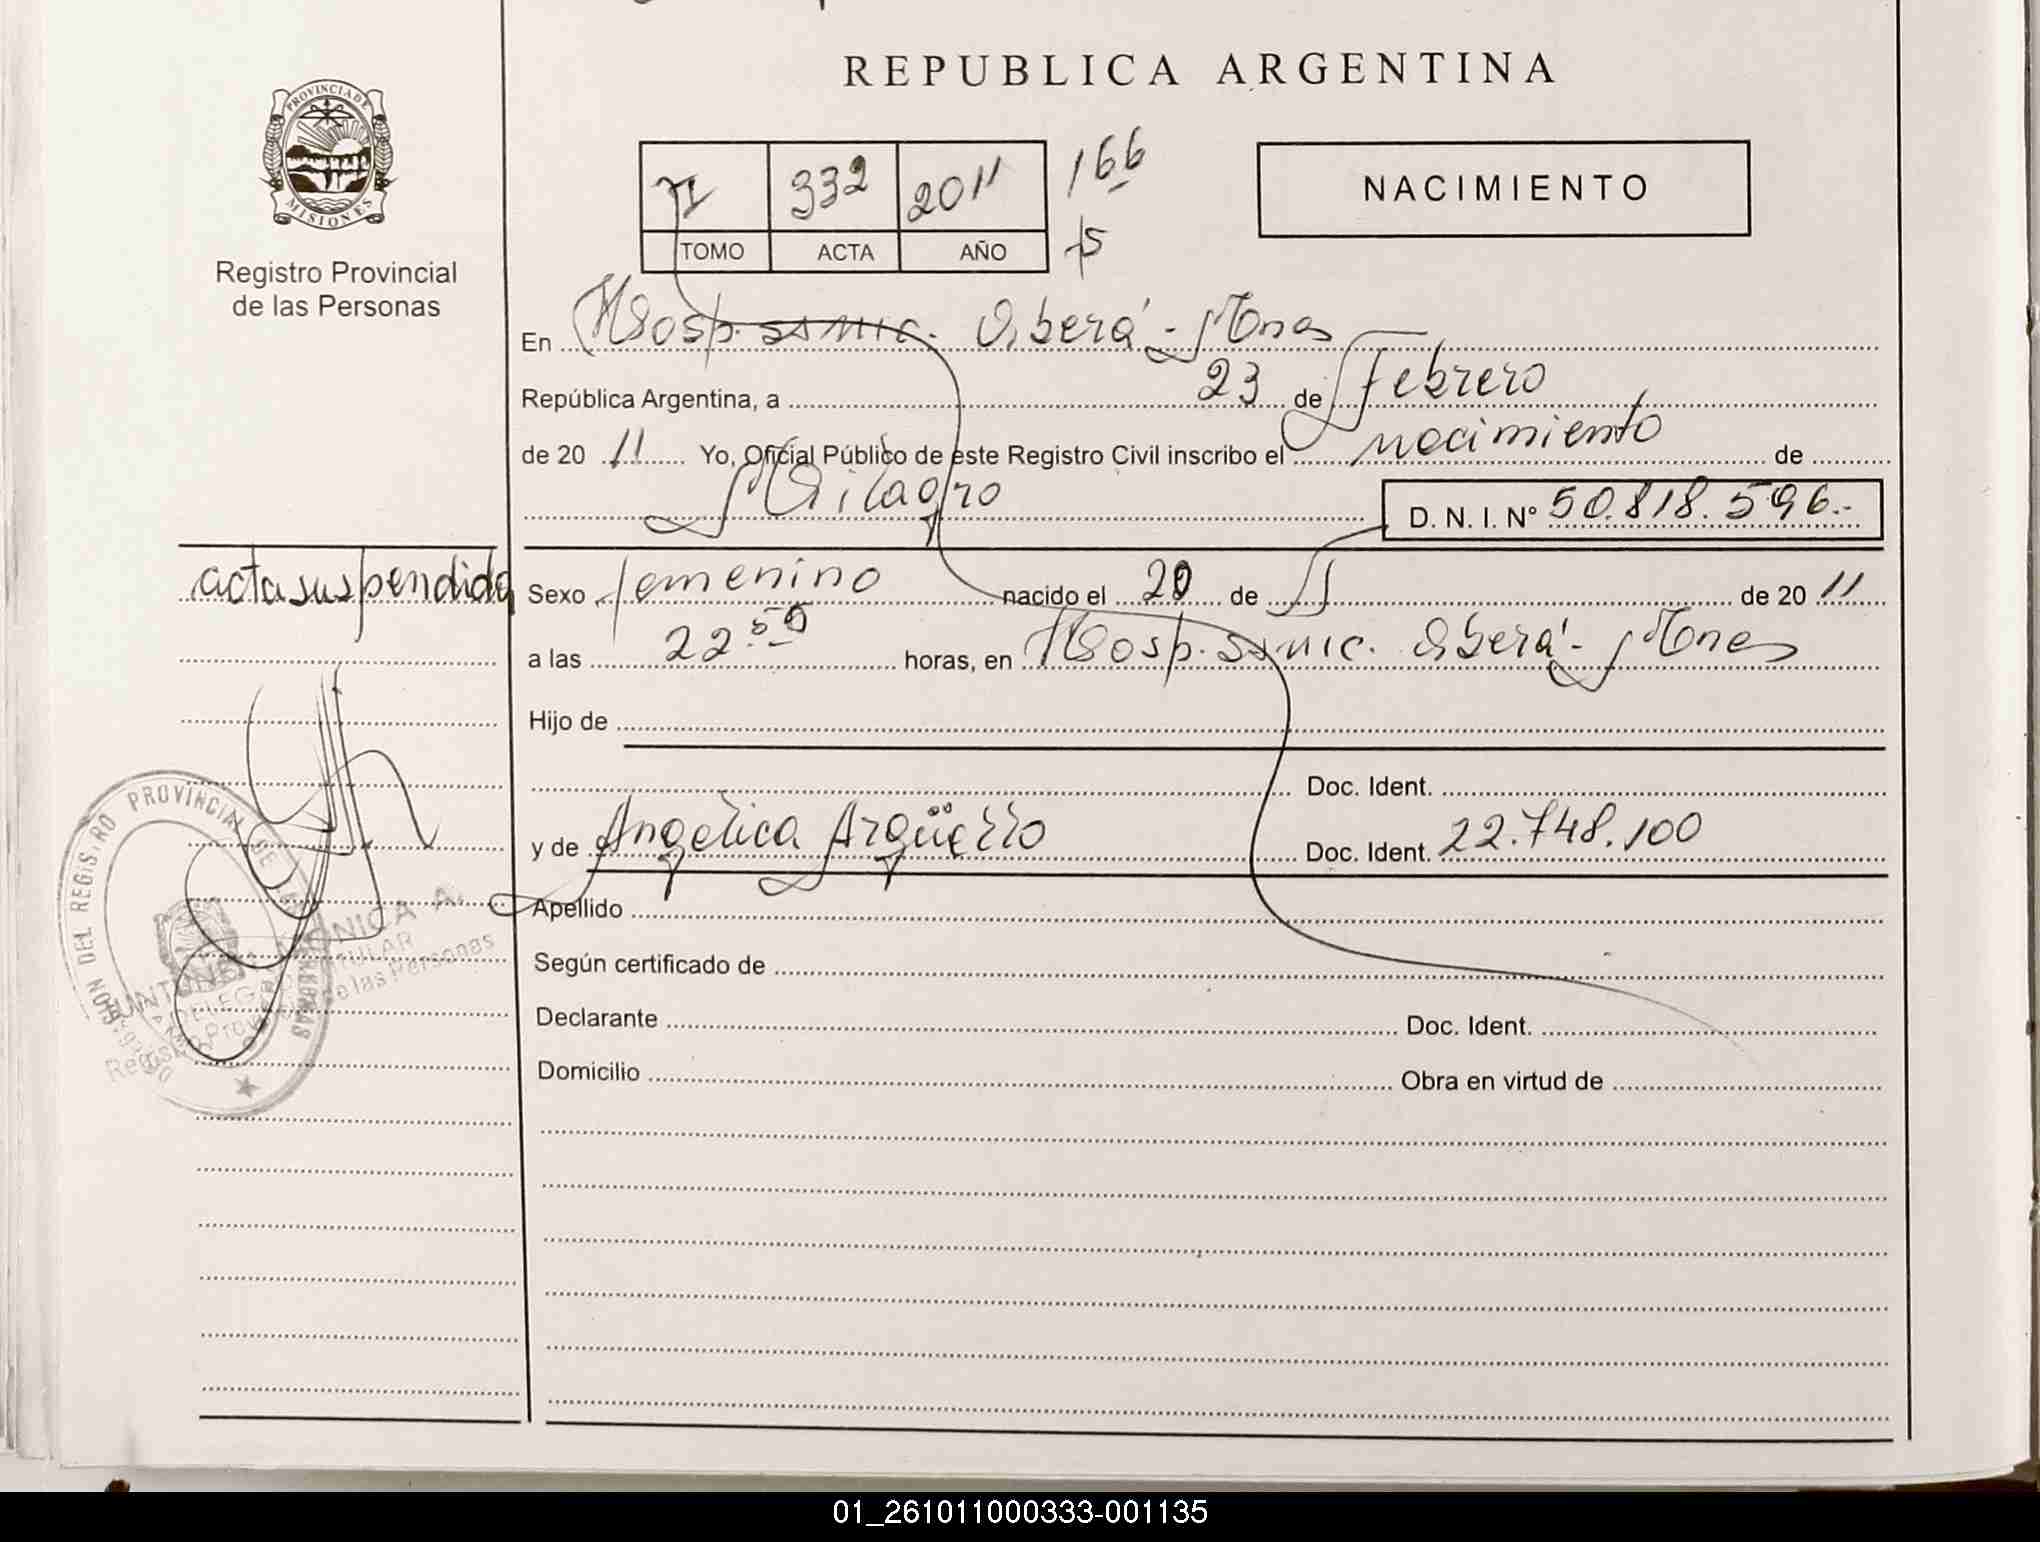 REPUBLICA ARGENTINA
PROVINCIA DE
MISIONES
Registro Provincial
de las Personas
332 2011 166
TOMO ACTA AÑO
NACIMIENTO
En Hosp. ssmic. Oberá - Mnes
República Argentina, a 23 de Febrero
de 20 11 Yo, Oficial Público de este Registro Civil inscribo el nacimiento de
Milagro D. N. I. Nº 50.818.596.-
acta suspendida
Sexo femenino nacido el 20 de de 20 11
a las 22.50 horas, en Hosp. ssmic. Oberá - Mnes
Hijo de
Doc. Ident.
y de Angélica Argüello Doc. Ident. 22.748.100
Apellido
Según certificado de
Declarante Doc. Ident.
Domicilio Obra en virtud de
DEL REGISTRO PROVINCIAL DE LAS PERSONAS
MONICA A.
TITULAR
Registro Provincial de las Personas
01_261011000333-001135